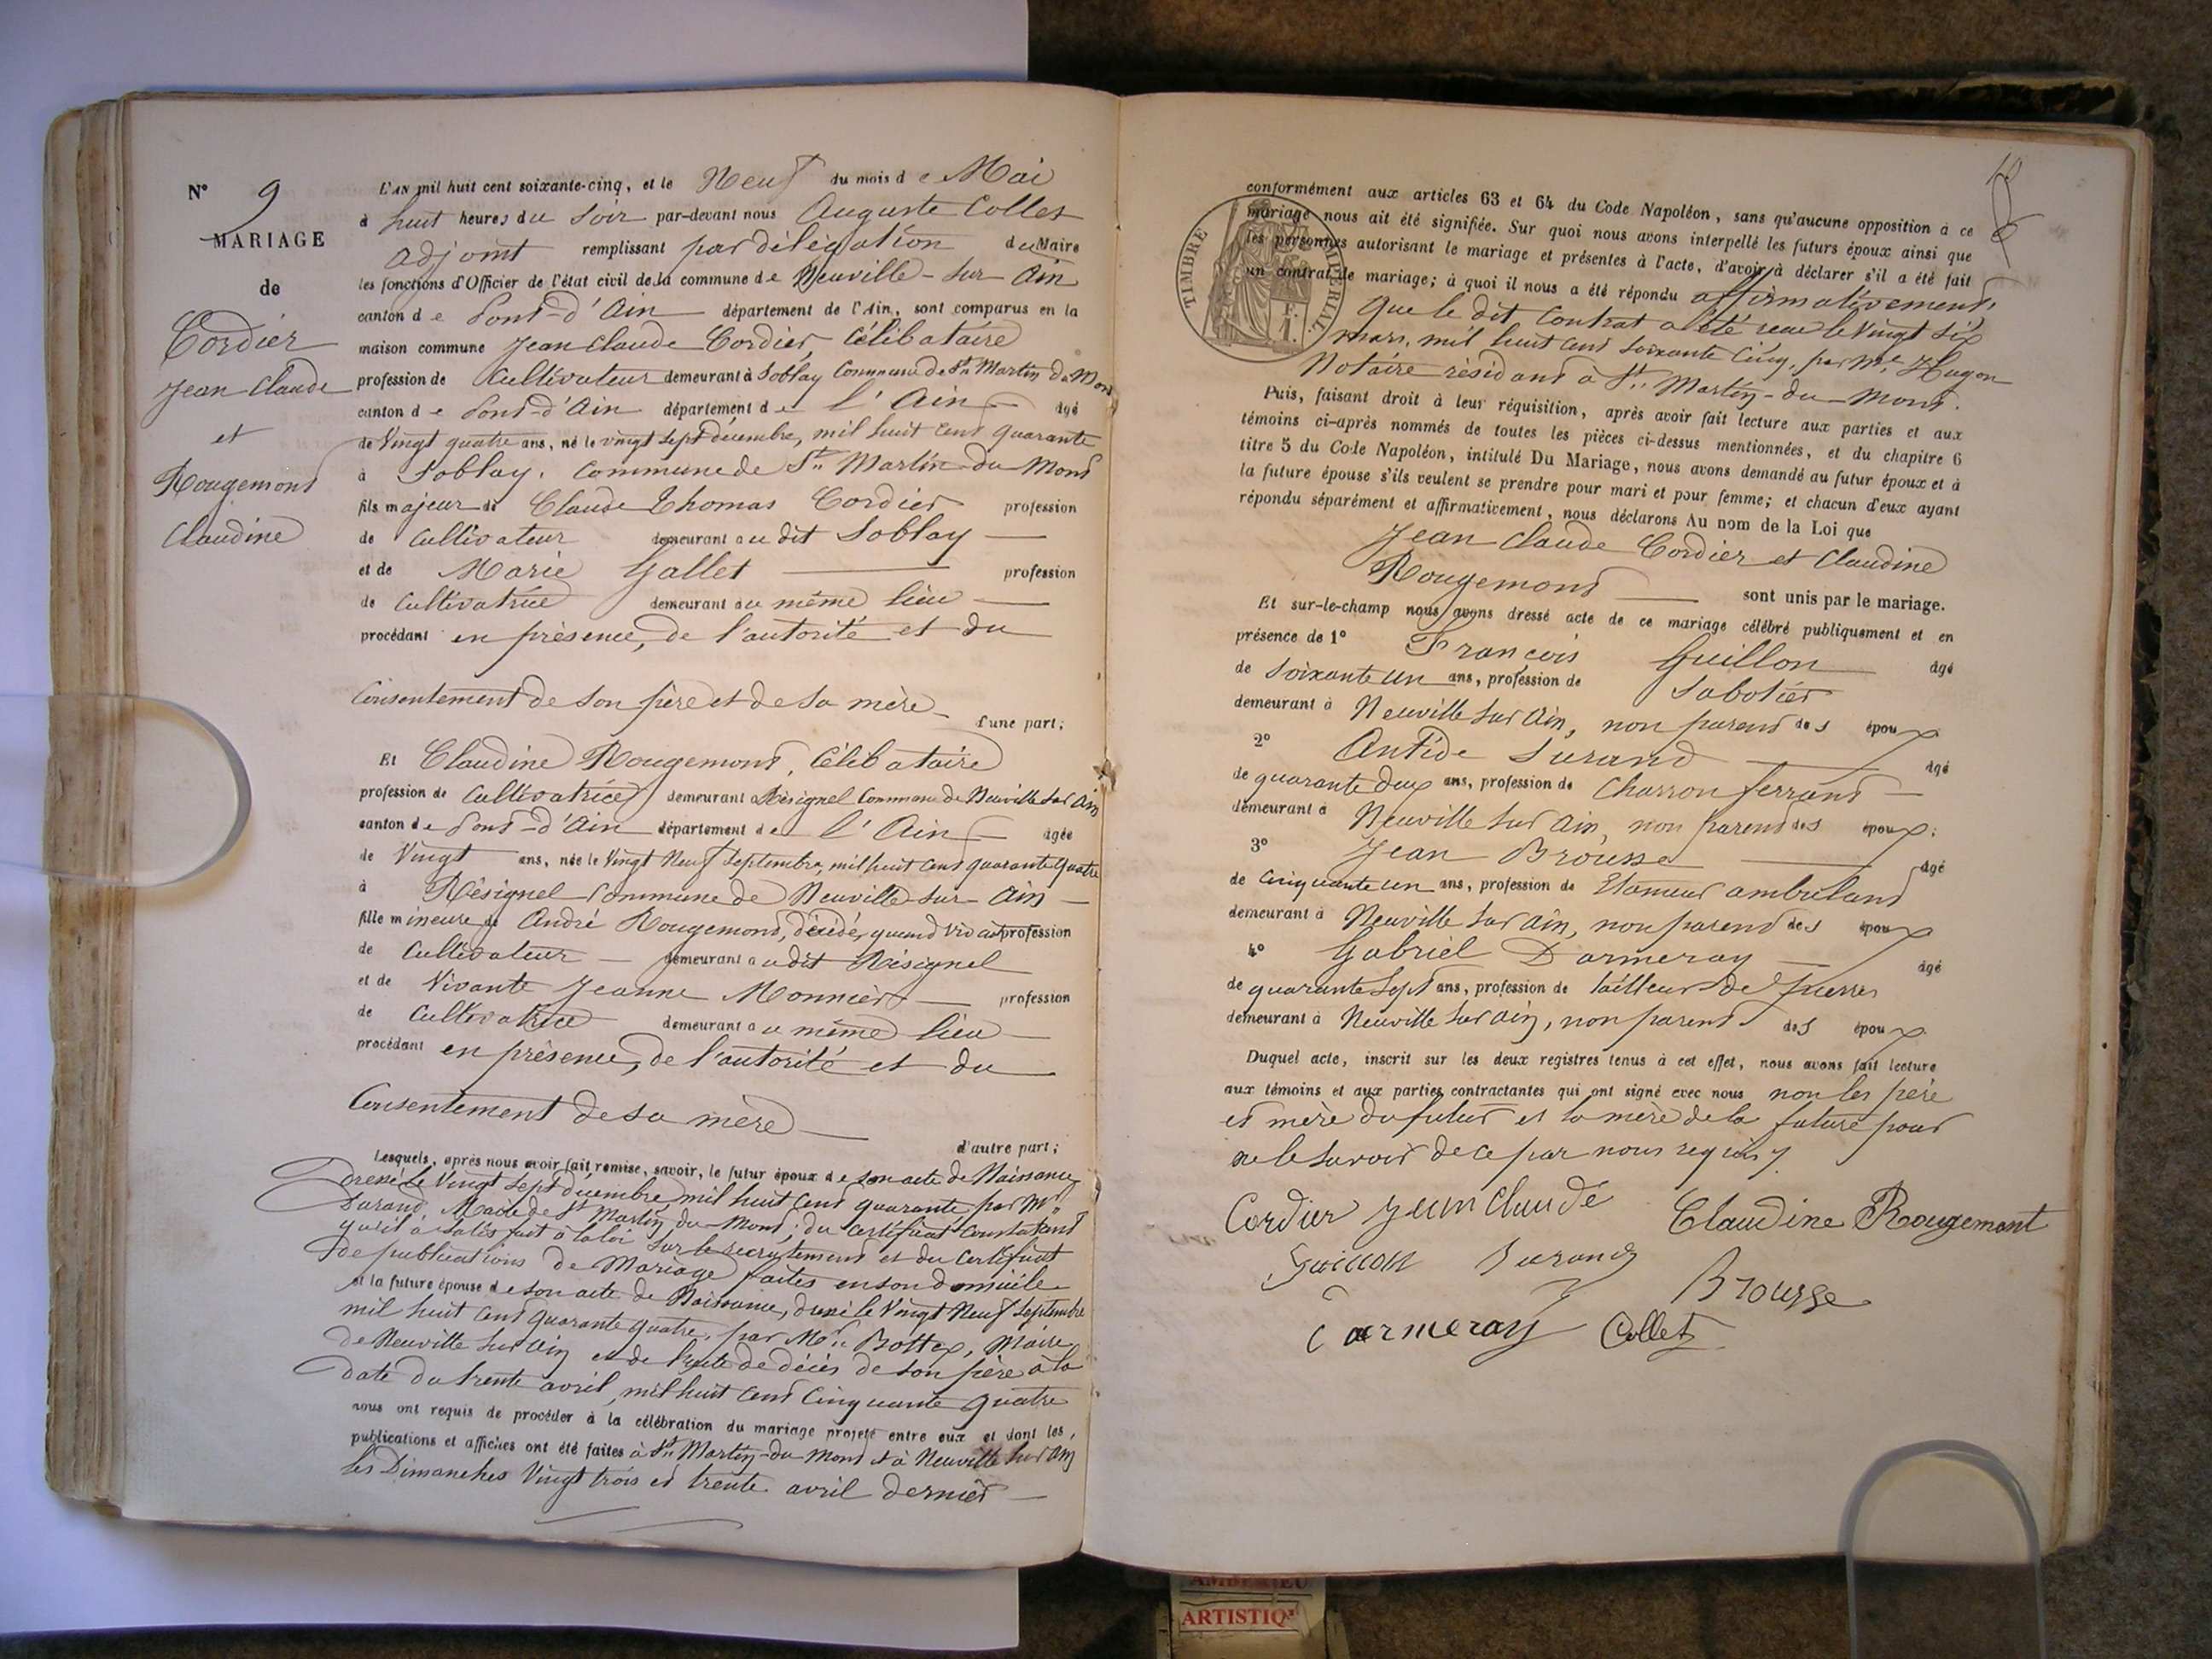 N° 9
MARIAGE
de
Cordier
Jean Claude
et
Rougemont
Claudine
L'AN mil huit cent soixante-cinq, et le Neuf du mois de Mai
à huit heures du Soir par-devant nous Auguste Collet
adjoint remplissant par délégation du Maire
les fonctions d'Officier de l'état civil de la commune de Neuville-sur-Ain
canton de Pont-d'Ain département de l'Ain, sont comparus en la
maison commune Jean Claude Cordier, Célibataire
profession de Cultivateur demeurant à Soblay Commune de St Martin du Mont
canton de Pont-d'Ain département de l'Ain âgé
de Vingt quatre ans, né le vingt sept décembre, mil huit cent quarante
à Soblay, Commune de St Martin-du-Mont
fils majeur de Claude Thomas Cordier profession
de Cultivateur demeurant au dit Soblay
et de Marie Gallet profession
de Cultivatrice demeurant au même lieu
procédant en présence, de l'autorité et du
Consentement de son père et de sa mère
d'une part;
Et Claudine Rougemont, Célibataire
profession de Cultivatrice demeurant à Résignel Commune de Neuville sur Ain
canton de Pont-d'Ain département de l'Ain âgée
de Vingt ans, née le Vingt Neuf Septembre, mil huit cent quarante quatre
à Résignel Commune de Neuville-sur-Ain
fille mineure de André Rougemont, décédé, quand vivait profession
de Cultivateur demeurant au dit Résignel
et de Vivante Jeanne Monnier profession
de Cultivatrice demeurant au même lieu
procédant en présence, de l'autorité et du
Consentement de sa mère
d'autre part;
Lesquels, après nous avoir fait remise, savoir, le futur époux de son acte de Naissance
dressé le Vingt sept décembre mil huit cent quarante par Mr
Durand, Maire de St Martin du-Mont; du certificat constatant
qu'il a satisfait à la loi sur le recrutement et du Certificat
de publications de Mariage faites en son domicile
et la future épouse de son acte de Naissance, dressé le Vingt Neuf Septembre
mil huit cent quarante quatre, par Mr Bottex, Maire
de Neuville sur Ain et de l'acte de décès de son père à la
date du trente avril, mil huit cent cinquante quatre
nous ont requis de procéder à la célébration du mariage projeté entre eux et dont les
publications et affiches ont été faites à St Martin-du-Mont et à Neuville sur Ain
les Dimanches Vingt trois et trente avril dernier
TIMBRE IMPÉRIAL
1 F.
conformément aux articles 63 et 64 du Code Napoléon, sans qu'aucune opposition à ce
mariage nous ait été signifiée. Sur quoi nous avons interpellé les futurs époux ainsi que
les personnes autorisant le mariage et présentes à l'acte, d'avoir à déclarer s'il a été fait
un contrat de mariage; à quoi il nous a été répondu affirmativement,
que le dit Contrat a été reçu le Vingt six
mars, mil huit cent soixante cinq, par Me Hugon
Notaire résidant à St Martin-du-Mont.
Puis, faisant droit à leur réquisition, après avoir fait lecture aux parties et aux
témoins ci-après nommés de toutes les pièces ci-dessus mentionnées, et du chapitre 6
titre 5 du Code Napoléon, intitulé Du Mariage, nous avons demandé au futur époux et à
la future épouse s'ils veulent se prendre pour mari et pour femme; et chacun d'eux ayant
répondu séparément et affirmativement, nous déclarons Au nom de la Loi que
Jean Claude Cordier et Claudine
Rougemont sont unis par le mariage.
Et sur-le-champ nous avons dressé acte de ce mariage célébré publiquement et en
présence de 1° François Guillon âgé
de soixante un ans, profession de Sabotier
demeurant à Neuville sur Ain, non parent des époux
2° Antide Durand âgé
de quarante deux ans, profession de Charron ferrant
demeurant à Neuville sur Ain, non parent des époux;
3° Jean Brousse âgé
de cinquante un ans, profession de Etameur ambulant
demeurant à Neuville sur Ain, non parent des époux
4° Gabriel Darmeray âgé
de quarante sept ans, profession de tailleur de pierres
demeurant à Neuville sur Ain, non parent des époux
Duquel acte, inscrit sur les deux registres tenus à cet effet, nous avons fait lecture
aux témoins et aux parties contractantes qui ont signé avec nous non les père
et mère du futur et la mère de la future pour
ne le savoir de ce par nous requis
Cordier Jean Claude Claudine Rougemont
Guillon Durand Brousse
Darmeray Collet
ARTISTIQ